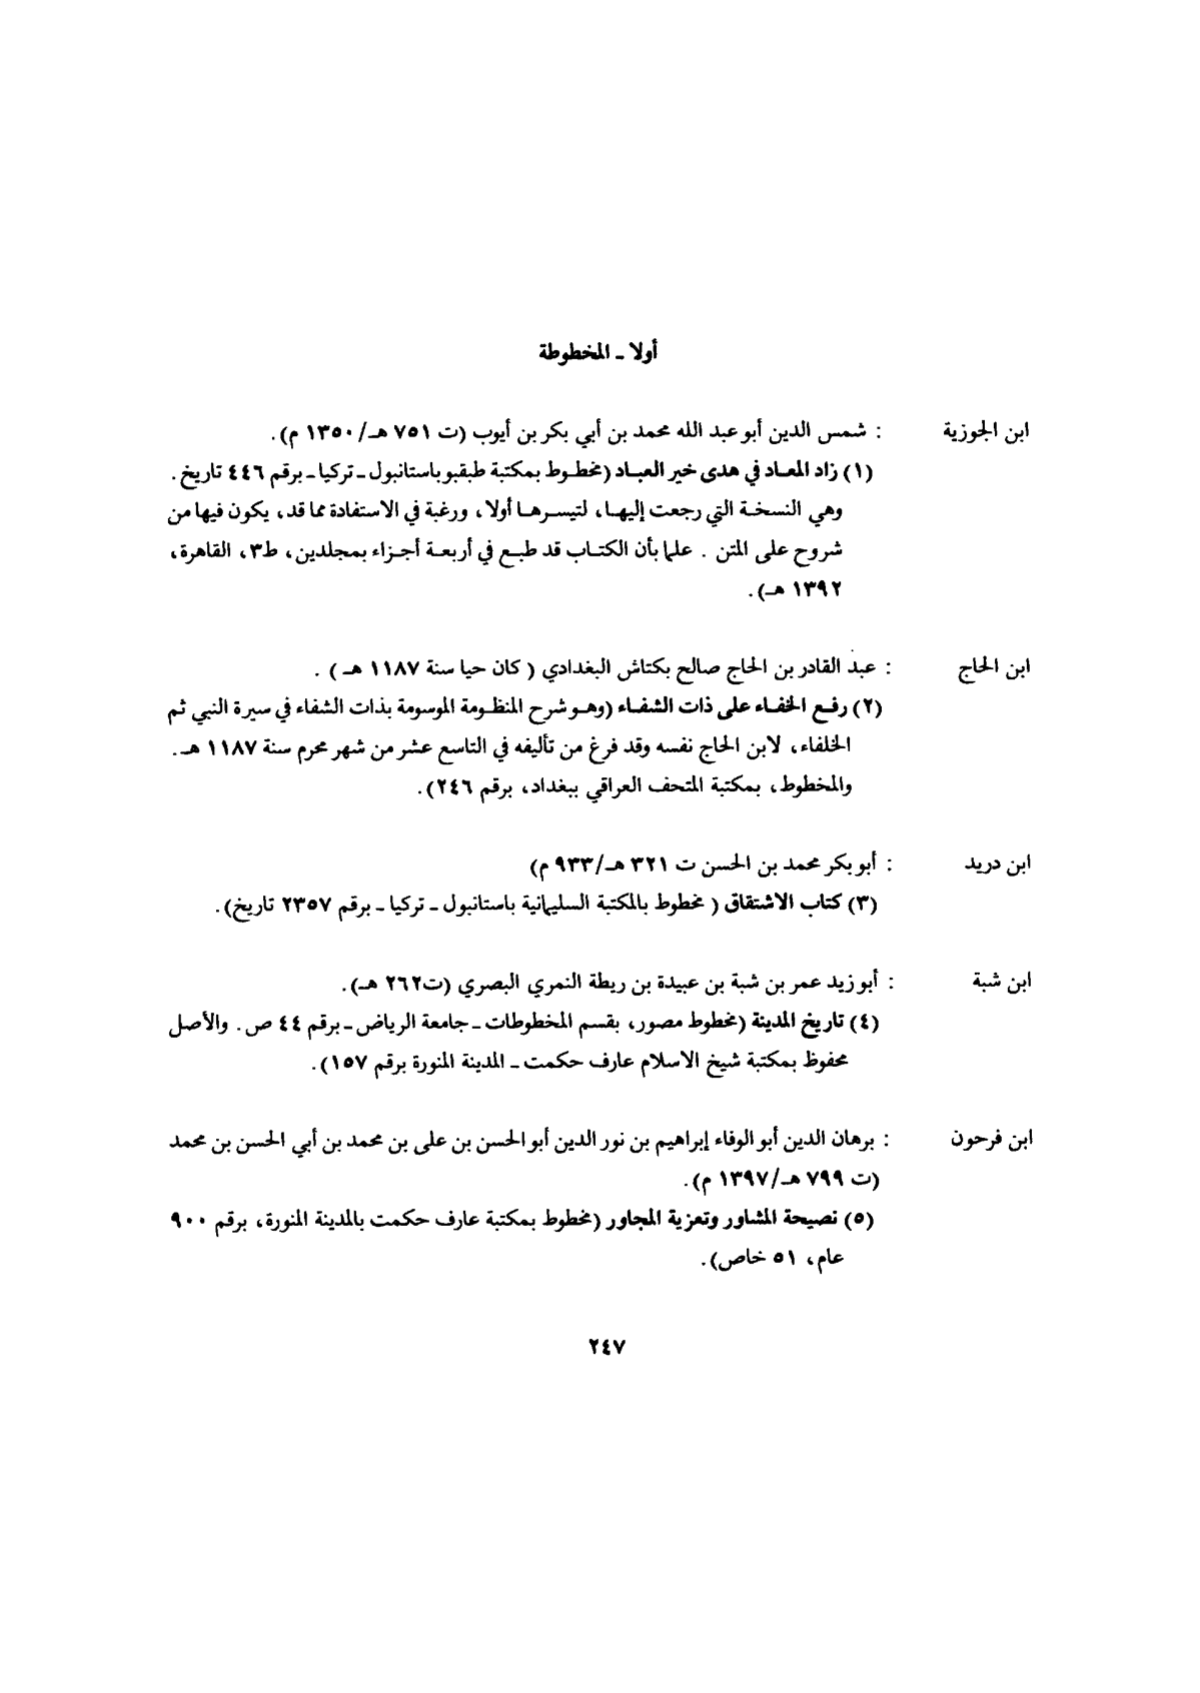 أولا ـ المخطوطة
ابن الجوزية : شمس الدين أبو عبد الله محمد بن أبي بكر بن أيوب (ت ٧٥١ هـ/١٣٥٠ م).
(١) زاد المعاد في هدى خير العباد (مخطوط بمكتبة طبقبو باستانبول ـ تركيا ـ برقم ٤٤٦ تاريخ.
وهي النسخة التي رجعت إليها، لتيسرها أولا، ورغبة في الاستفادة مما قد، يكون فيها من
شروح على المتن . علما بأن الكتاب قد طبع في أربعة أجزاء بمجلدين، ط٣، القاهرة،
١٣٩٢ هـ).
ابن الحاج : عبد القادر بن الحاج صالح بكتاش البغدادي ( كان حيا سنة ١١٨٧ هـ ) .
(٢) رفع الخفاء على ذات الشفاء (وهو شرح المنظومة الموسومة بذات الشفاء في سيرة النبي ثم
الخلفاء، لابن الحاج نفسه وقد فرغ من تأليفه في التاسع عشر من شهر محرم سنة ١١٨٧ هـ.
والمخطوط، بمكتبة المتحف العراقي ببغداد، برقم ٢٤٦).
ابن دريد : أبو بكر محمد بن الحسن ت ٣٢١ هـ/٩٣٣ م)
(٣) كتاب الاشتقاق ( مخطوط بالمكتبة السليمانية باستانبول ـ تركيا ـ برقم ٢٣٥٧ تاريخ).
ابن شبة : أبو زيد عمر بن شبة بن عبيدة بن ريطة النمري البصري (ت٢٦٢ هـ).
(٤) تاريخ المدينة (مخطوط مصور، بقسم المخطوطات ـ جامعة الرياض ـ برقم ٤٤ ص. والأصل
محفوظ بمكتبة شيخ الاسلام عارف حكمت ـ المدينة المنورة برقم ١٥٧).
ابن فرحون : برهان الدين أبو الوفاء إبراهيم بن نور الدين أبو الحسن بن على بن محمد بن أبي الحسن بن محمد
(ت ٧٩٩ هـ/١٣٩٧ م).
(٥) نصيحة المشاور وتعزية المجاور (مخطوط بمكتبة عارف حكمت بالمدينة المنورة، برقم ٩٠٠
عام، ٥١ خاص).
٢٤٧